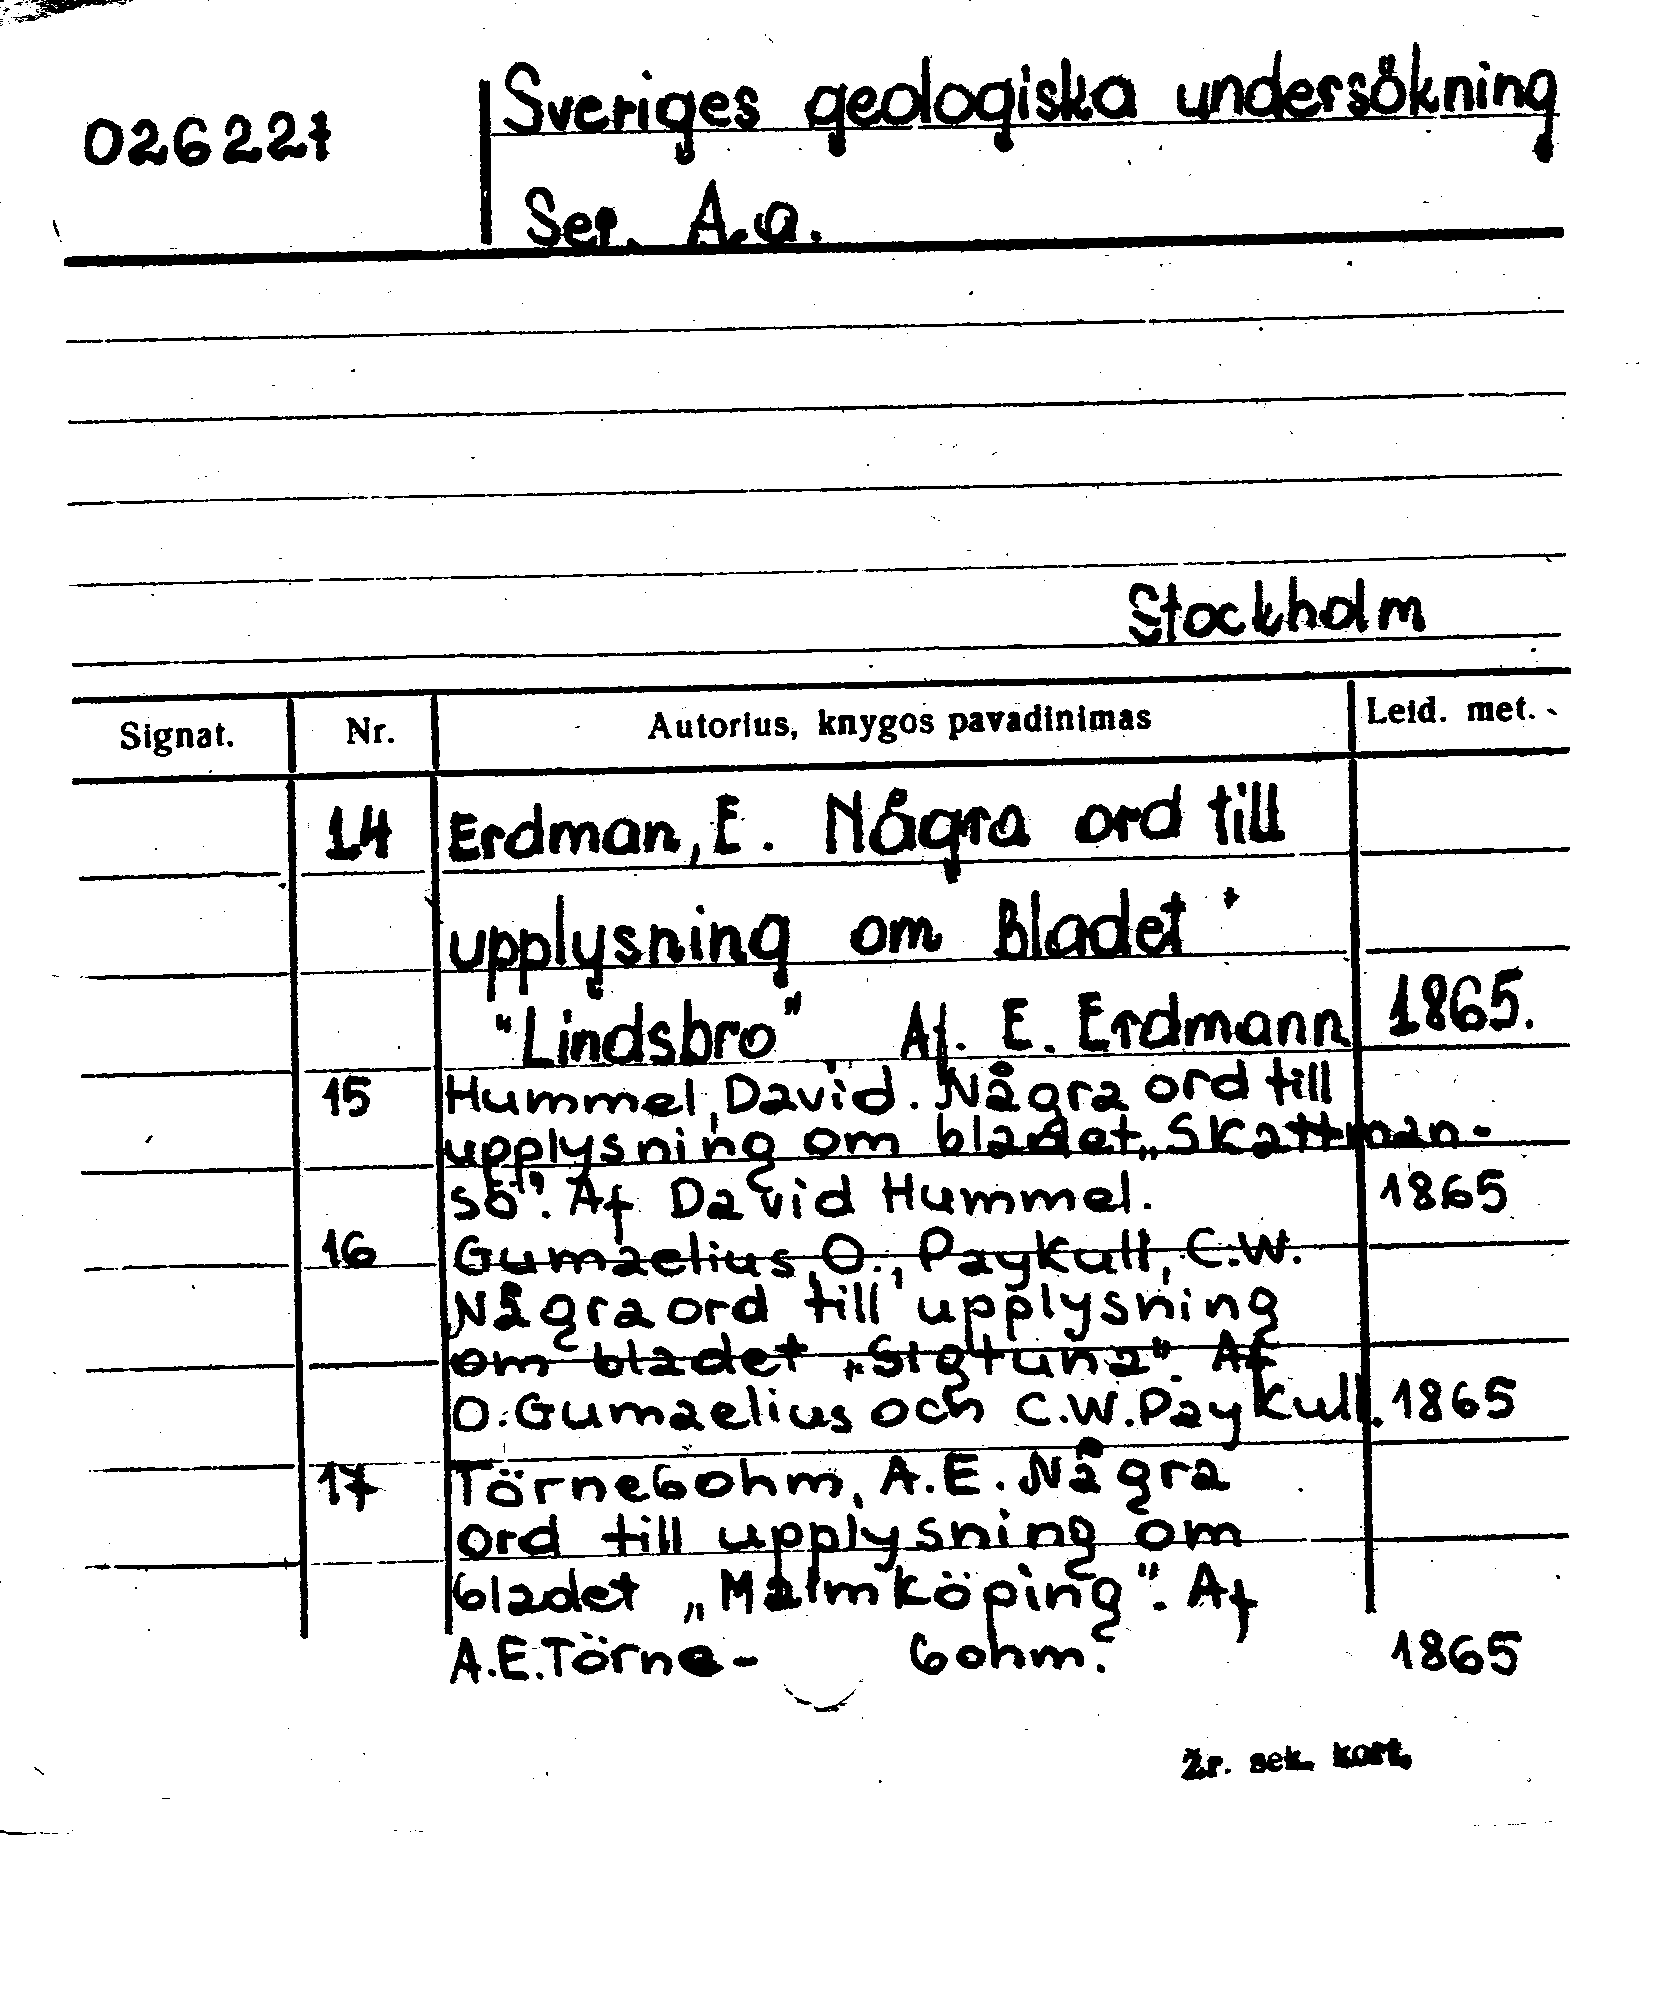 026221
Sveriges geologiska undersökning
Ser. A.a.
Stockholm
Signat. Nr. Autorius, knygos pavadinimas Leid. met.
14 Erdman, E. Några ord till
upplysning om Bladet
"Lindsbro" Af. E. Erdmann 1865.
15 Hummel, David. Några ord till
upplysning om bladet „Skattman-
sö". Af David Hummel. 1865
16 Gumaelius, O., Paykull, C.W.
Några ord till upplysning
om bladet „Sigtuna". Af
O. Gumaelius och C.W. Paykull. 1865
17 Törnebohm, A.E. Några
ord till upplysning om
bladet „Malmköping". Af
A.E. Törne- bohm. 1865
Žr. sek. kort.